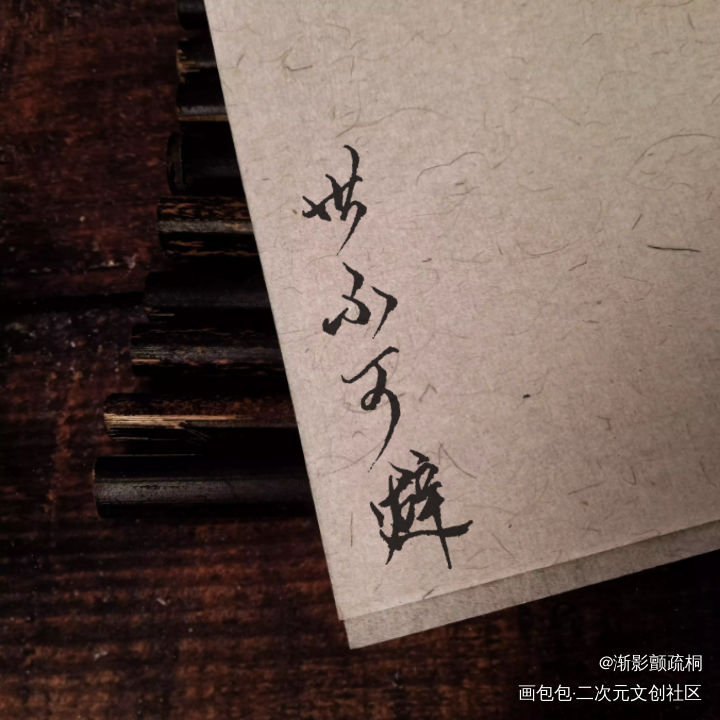 世不可避
@渐影颤疏桐
画包包·二次元文创社区